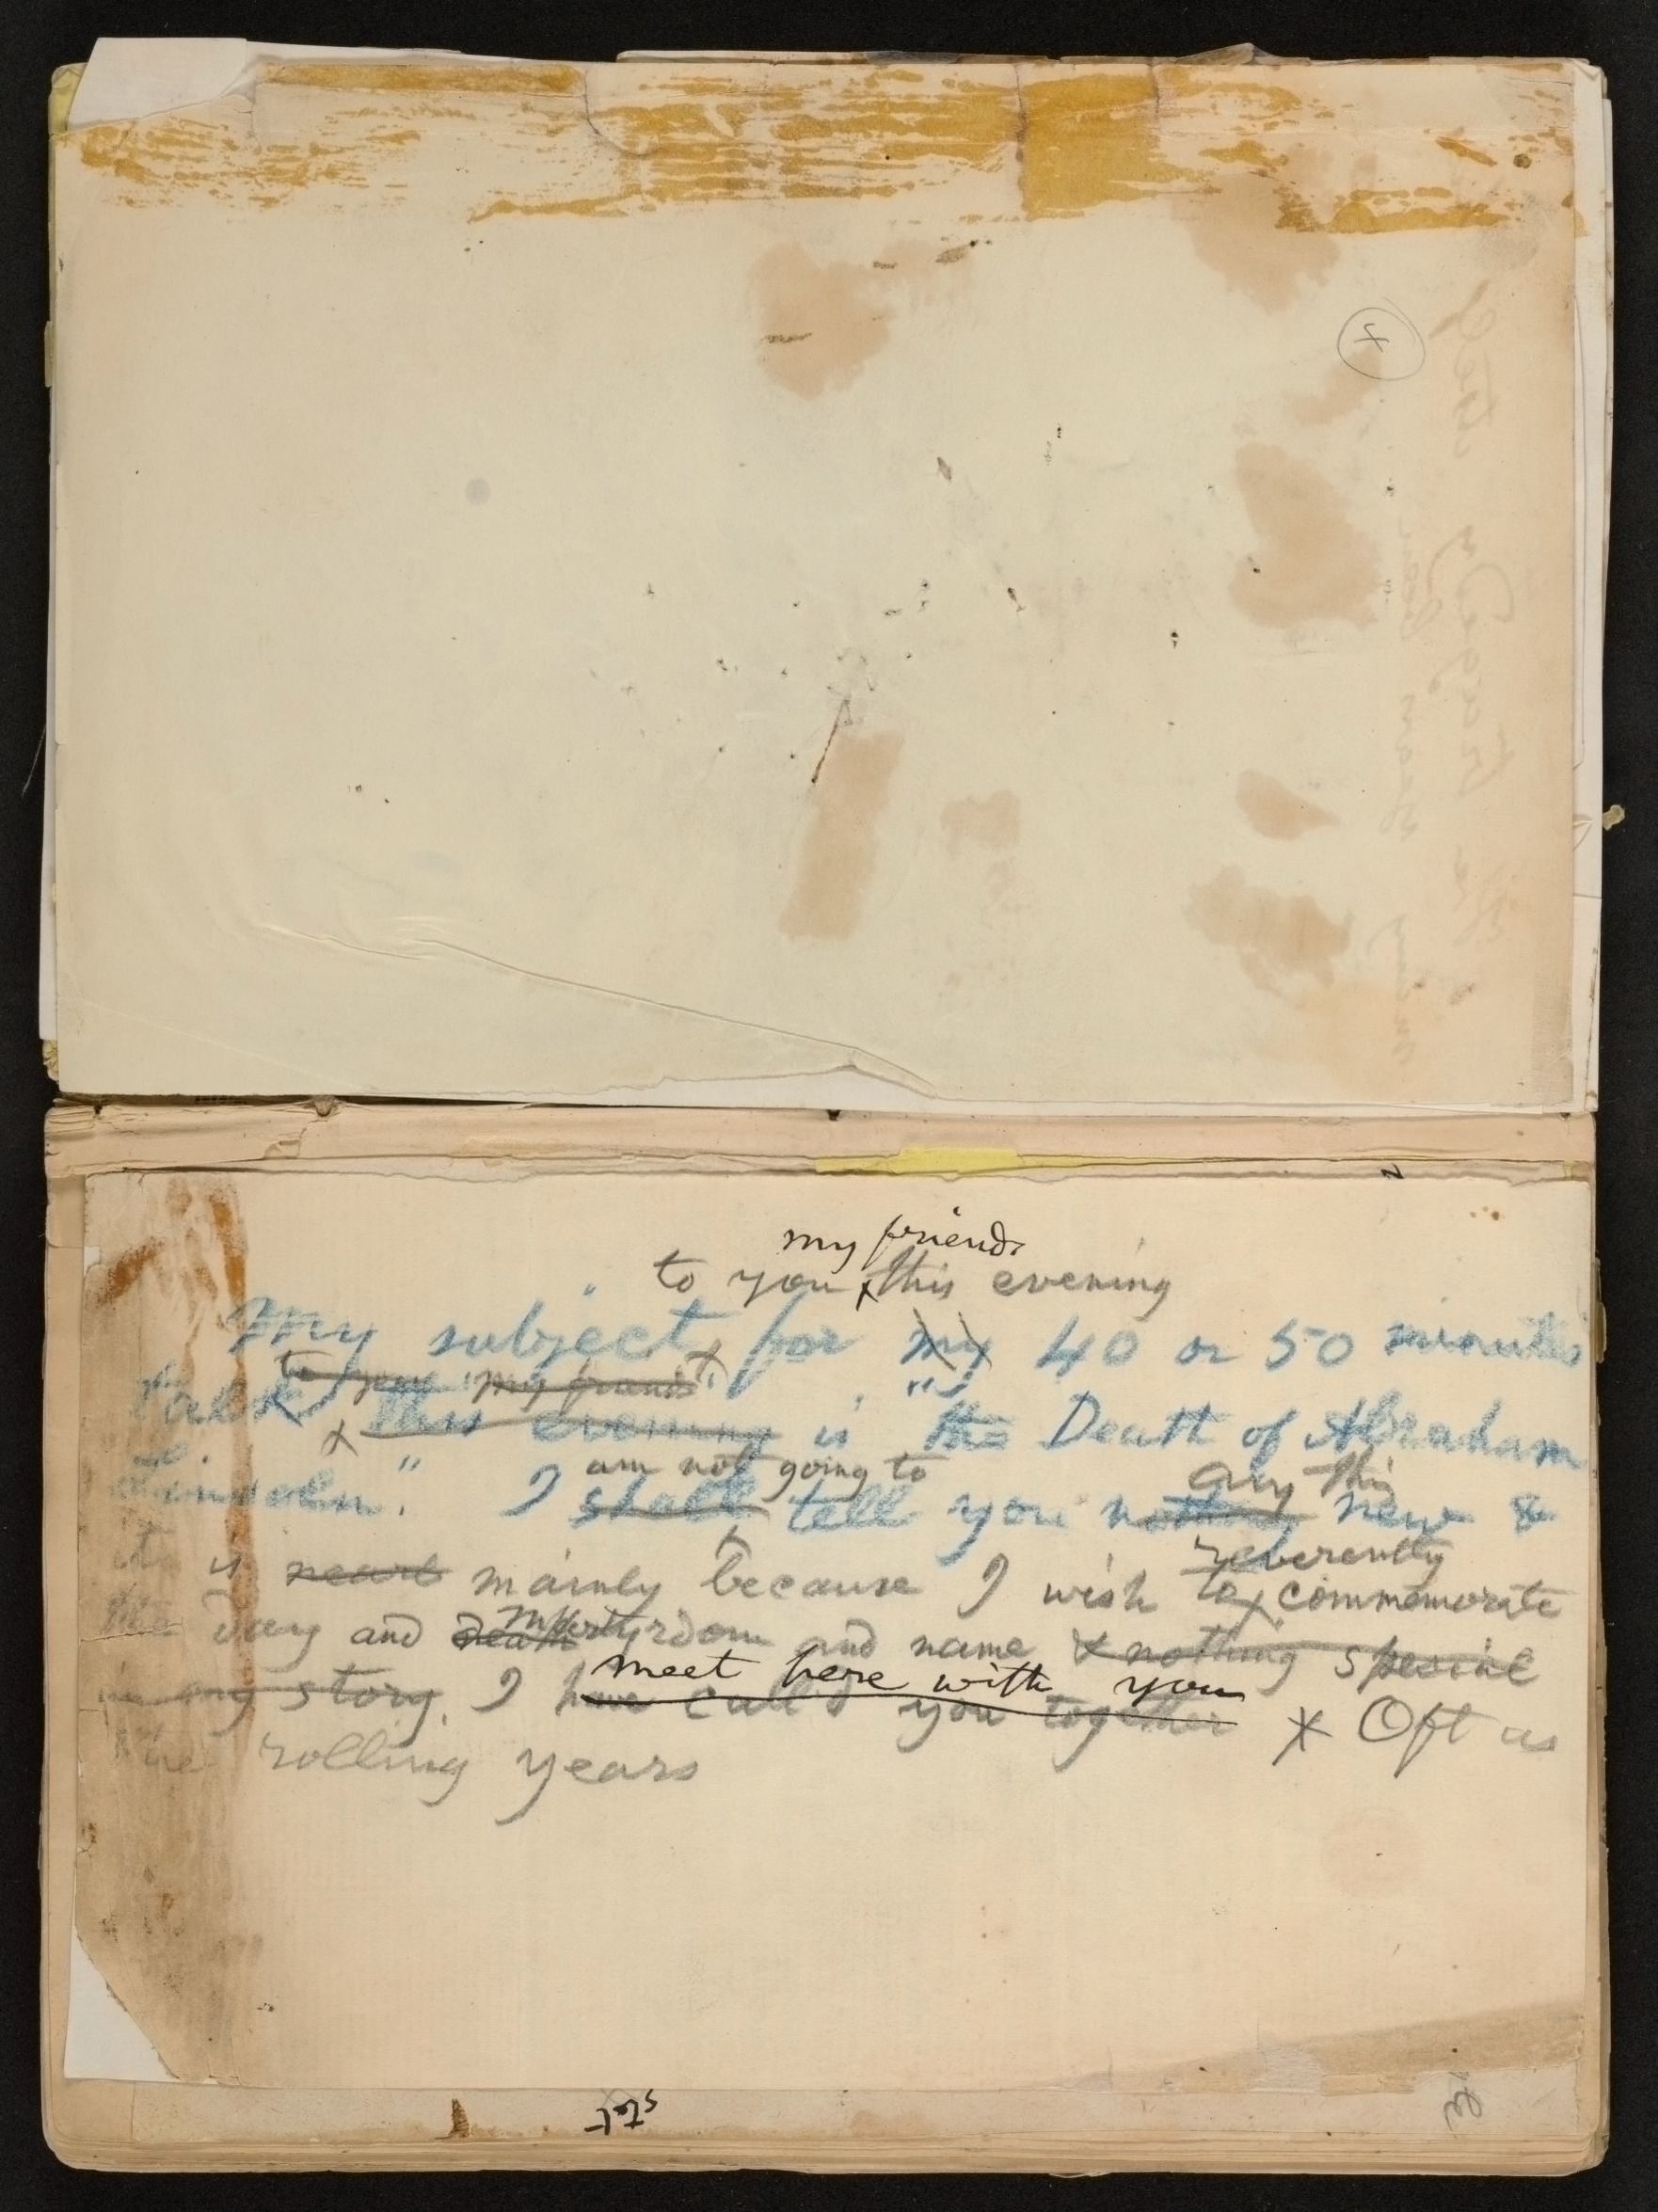 my friends
to you this evening
My subject, for my 40 or 50 minutes'
to you "my friends"
talk this evening is "the Death of Abraham
am not going to any thing
Lincoln." I shall tell you nothing new &
reverently
it is mainly because I wish to commemorate
martyrdom
the day and death and name & nothing special
meet here with you
in my story. I have call'd you together Oft as
the rolling years